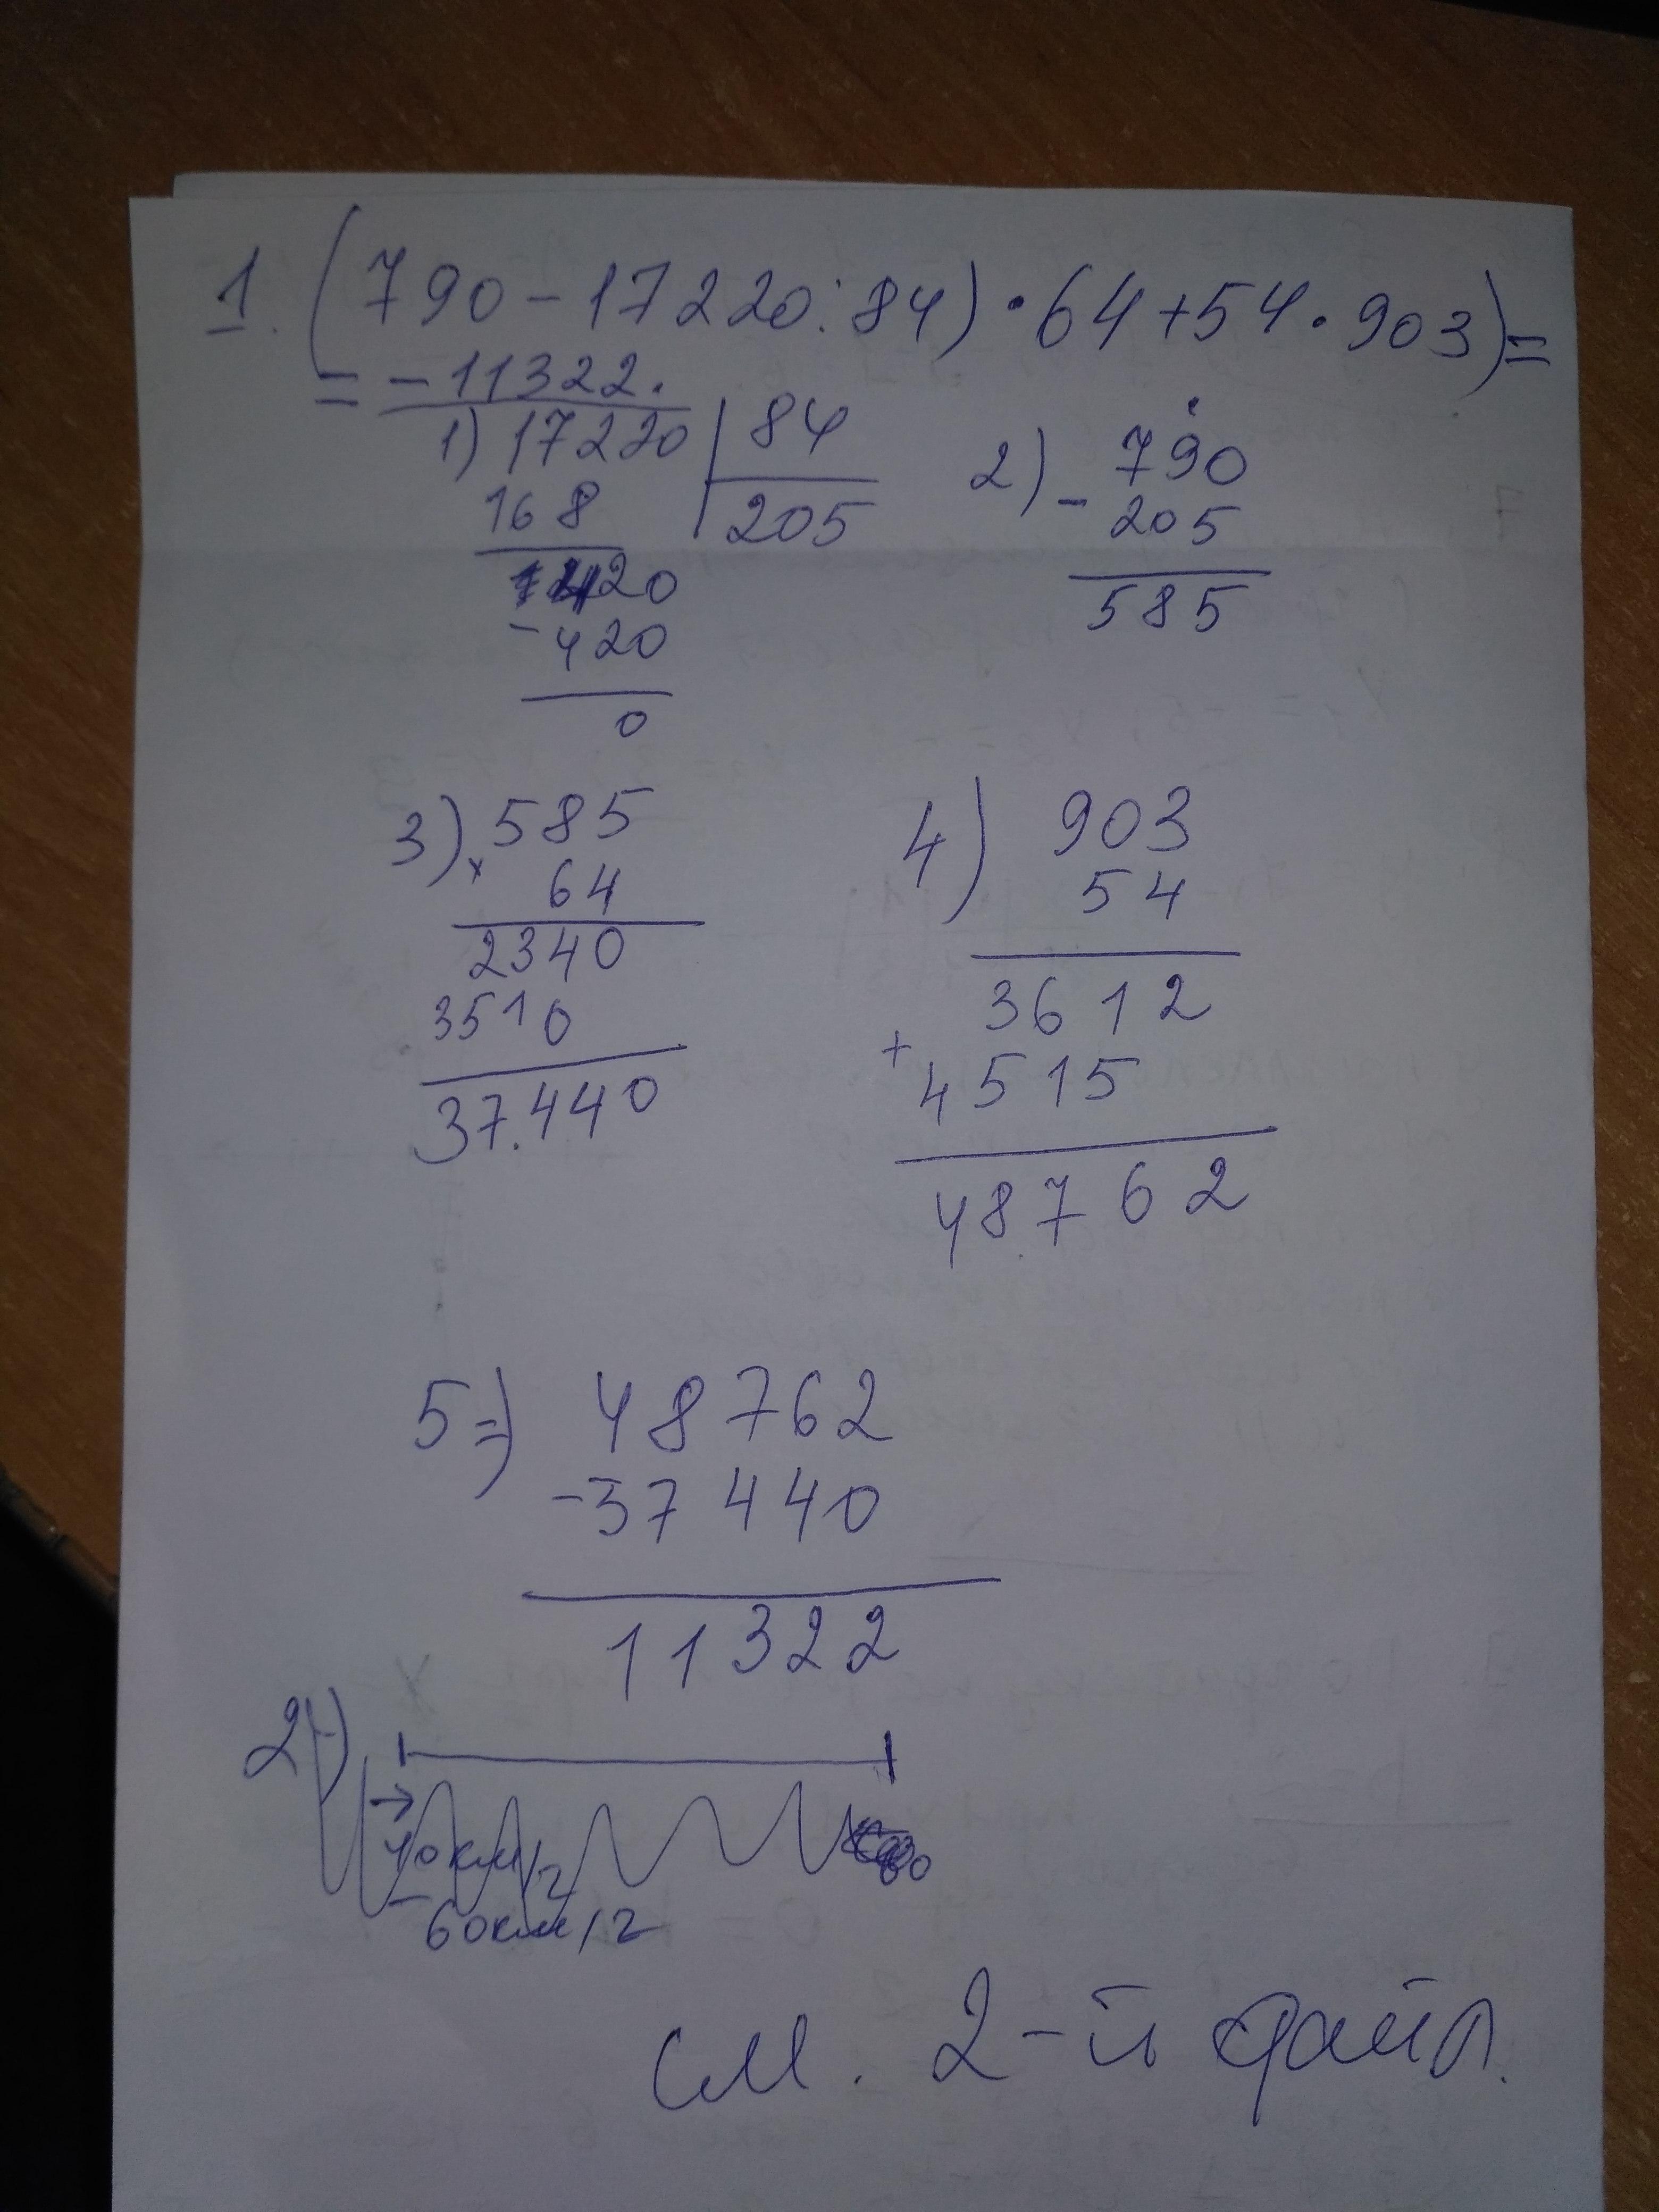 1. (790-17220:84)·64+54·903)=
= -11322.
1) 17220 | 84
168 205
420
- 420
0
2) - 790
205
585
3) x 585
64
2340
3510
37.440
4) 903
54
3612
+ 4515
48762
5=) 48762
-37440
11322
2)
40км/г
60км/г
80
см. 2-й файл.